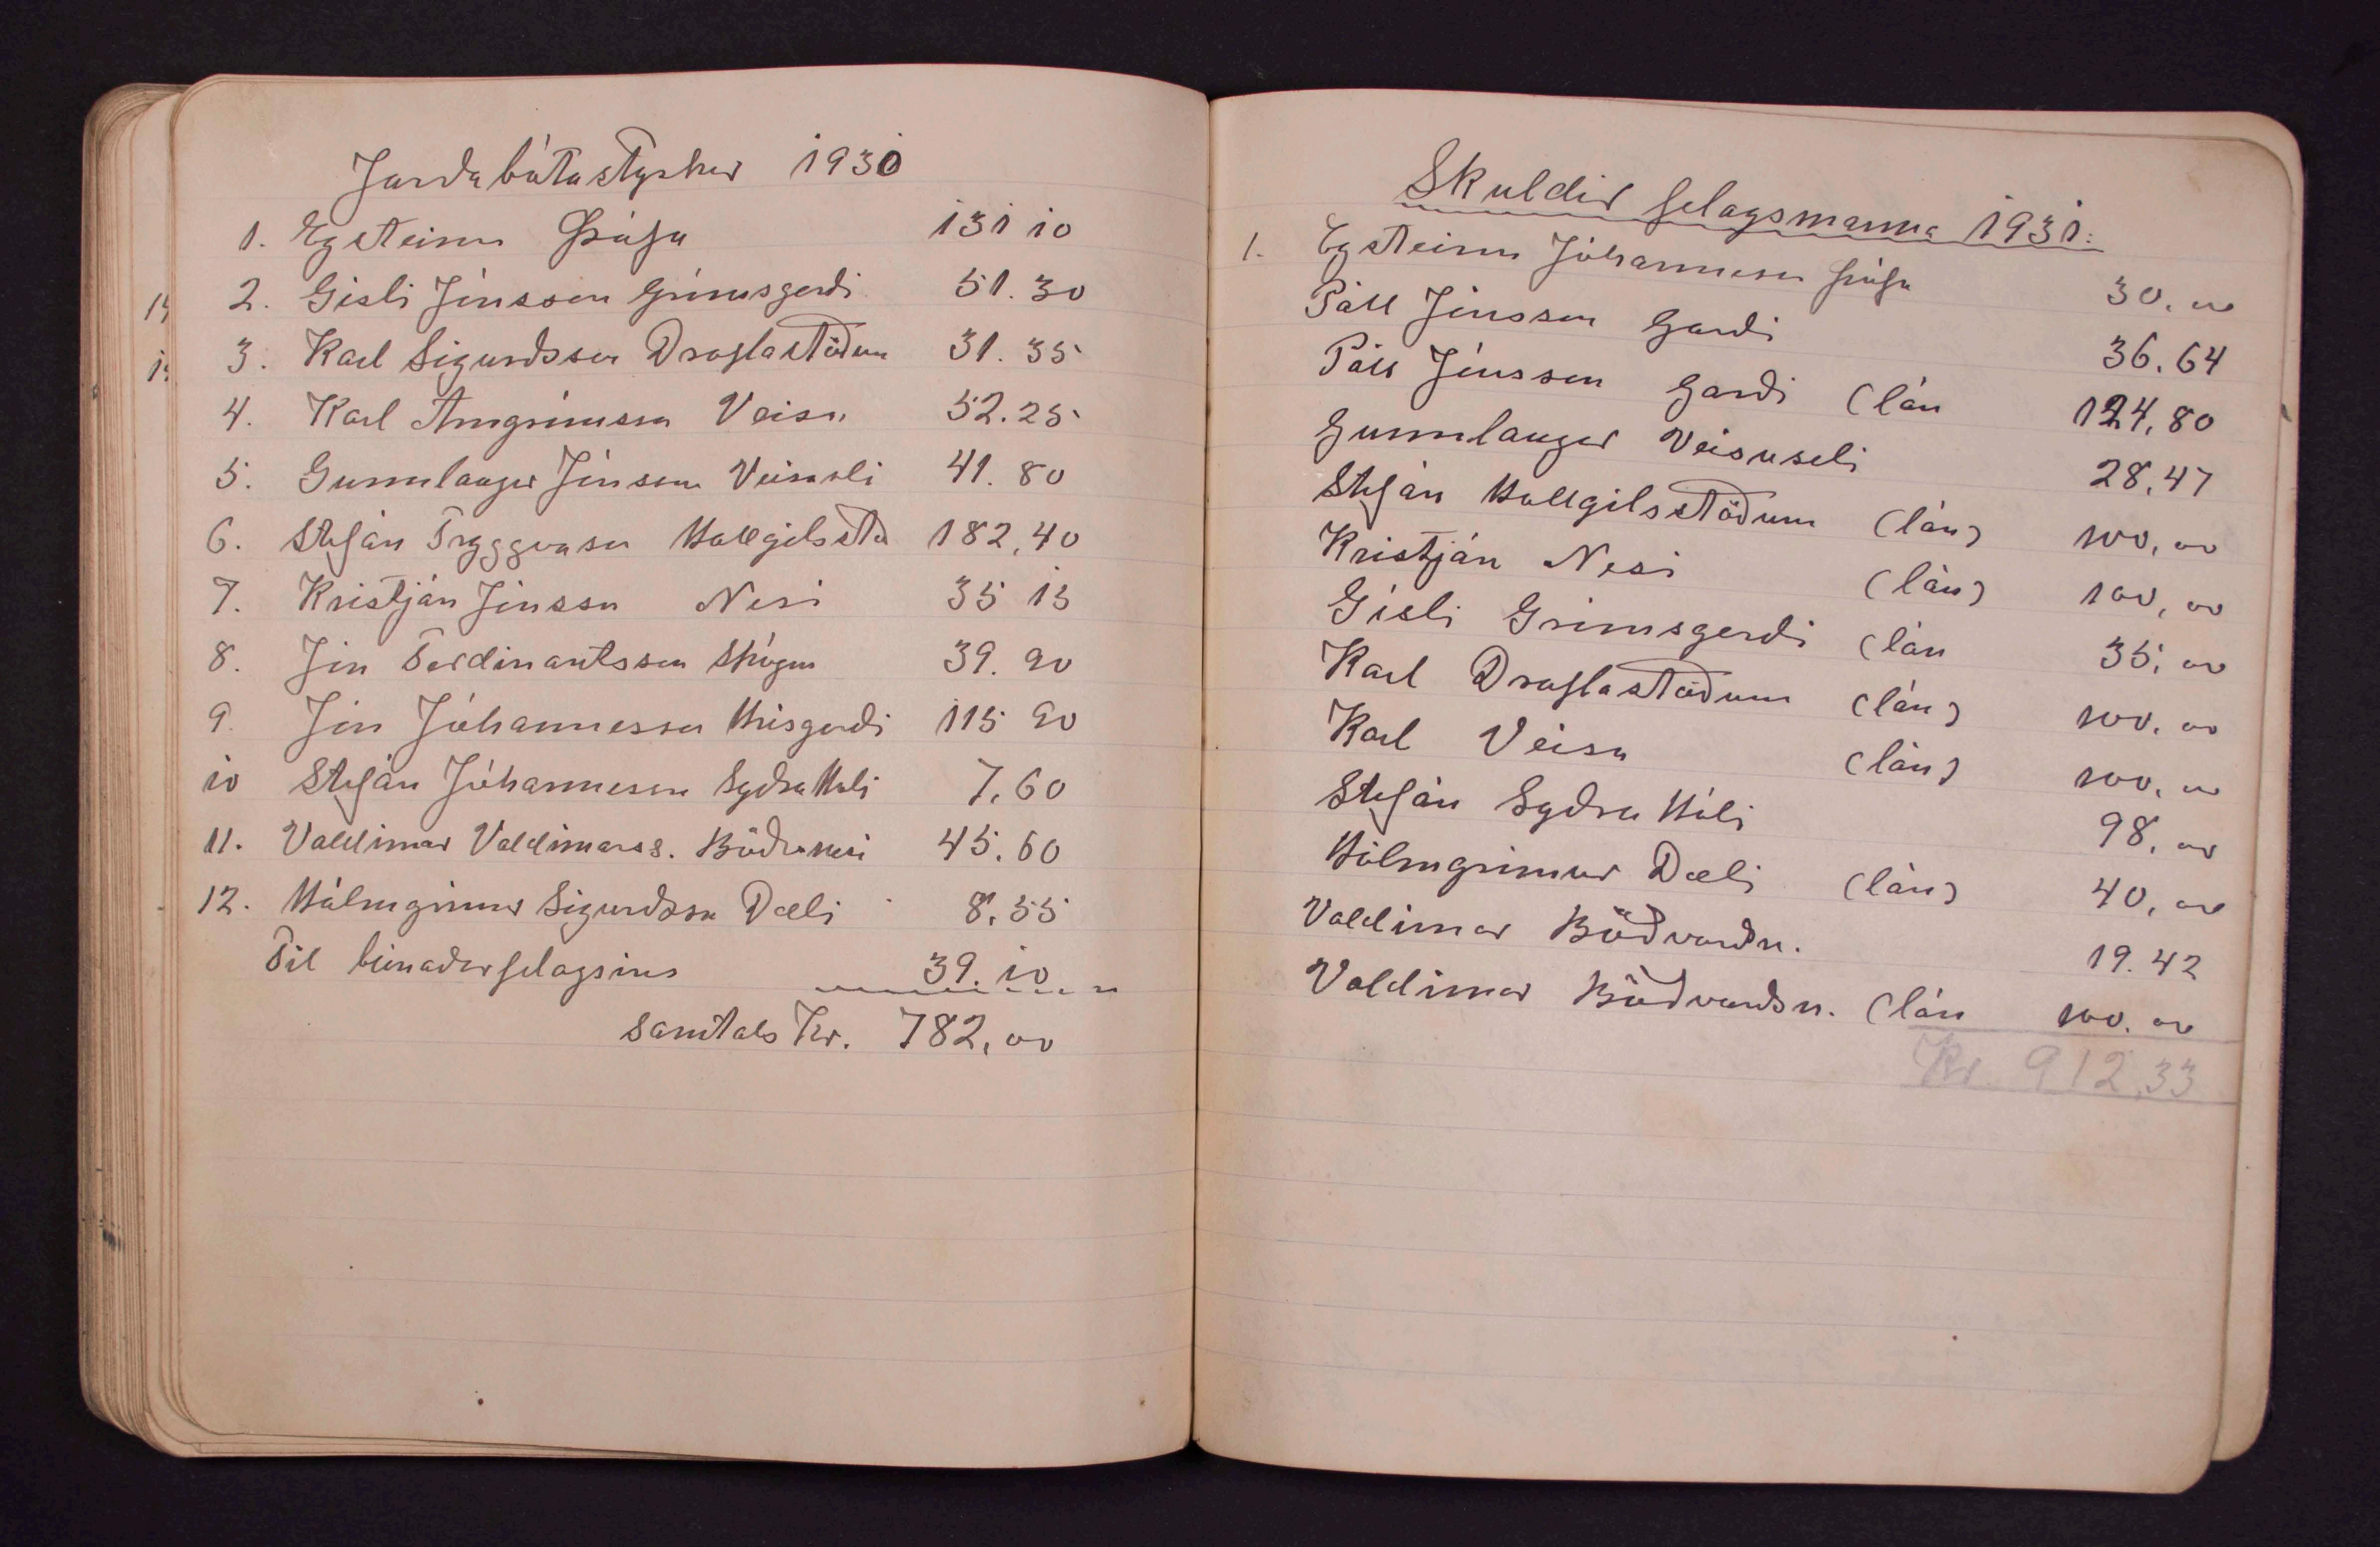 Jarðabótastyrkur 1930
1. Eysteinn Þúfu 131 10
2. Gísli Jónsson Grímsgerði 51.30
3. Karl Sigurðsson Draflastöðum 31.35
4. Karl Arngrímsson Veisu 52.25
5. Gunnlaugur Jónsson Veisuseli 41.80
6. Stefán Tryggvason Hallgilsst. 182,40
7. Kristján Jónsson Nesi 35 15
8. Jón Ferdinantsson Skógum 39.90
9. Jón Jóhannesson Hrísgerði 115 90
10 Stefán Jóhannesson Syðra Hóli 7,60
11. Valdimar Valdimarss. Böðvarsnesi 45.60
12. Hólmgrímur Sigurðsson Dæli 8,55
Til búnaðarfelagsins 39.10
samtals Kr. 782,00
14
Skuldir felagsmanna 1931.
1. Eysteinn Jóhannesson Þúfu 30.00
Páll Jónsson Garði 36.64
Páll Jónsson Garði (lán 124,80
Gunnlaugur Veisuseli 28,47
Stefán Hallgilsstöðum (lán) 100,00
Kristján Nesi (lán) 100,00
Gísli Grímsgerði (lán 35,00
Karl Draflastöðum (lán) 100.00
Karl Veisu (lán) 100.00
Stefán Syðra Hóli 98,00
Hólmgrímur Dæli (lán) 40,00
Valdimar Böðvarsn. 19.42
Valdimar Böðvarsn. (lán 100.00
Kr 912,33